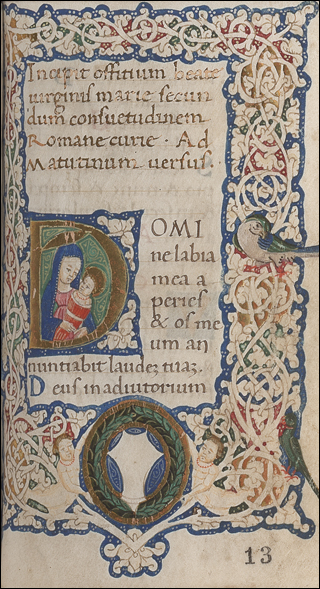 Incipit offitium beate
virginis marie secun
dum consuetudinem
Romane curie · Ad
Matutinum versus·
DOMI
ne labia
mea a
peries
& os me
um an
nuntiabit laudez tuaz.
Deus in adiutorium
13